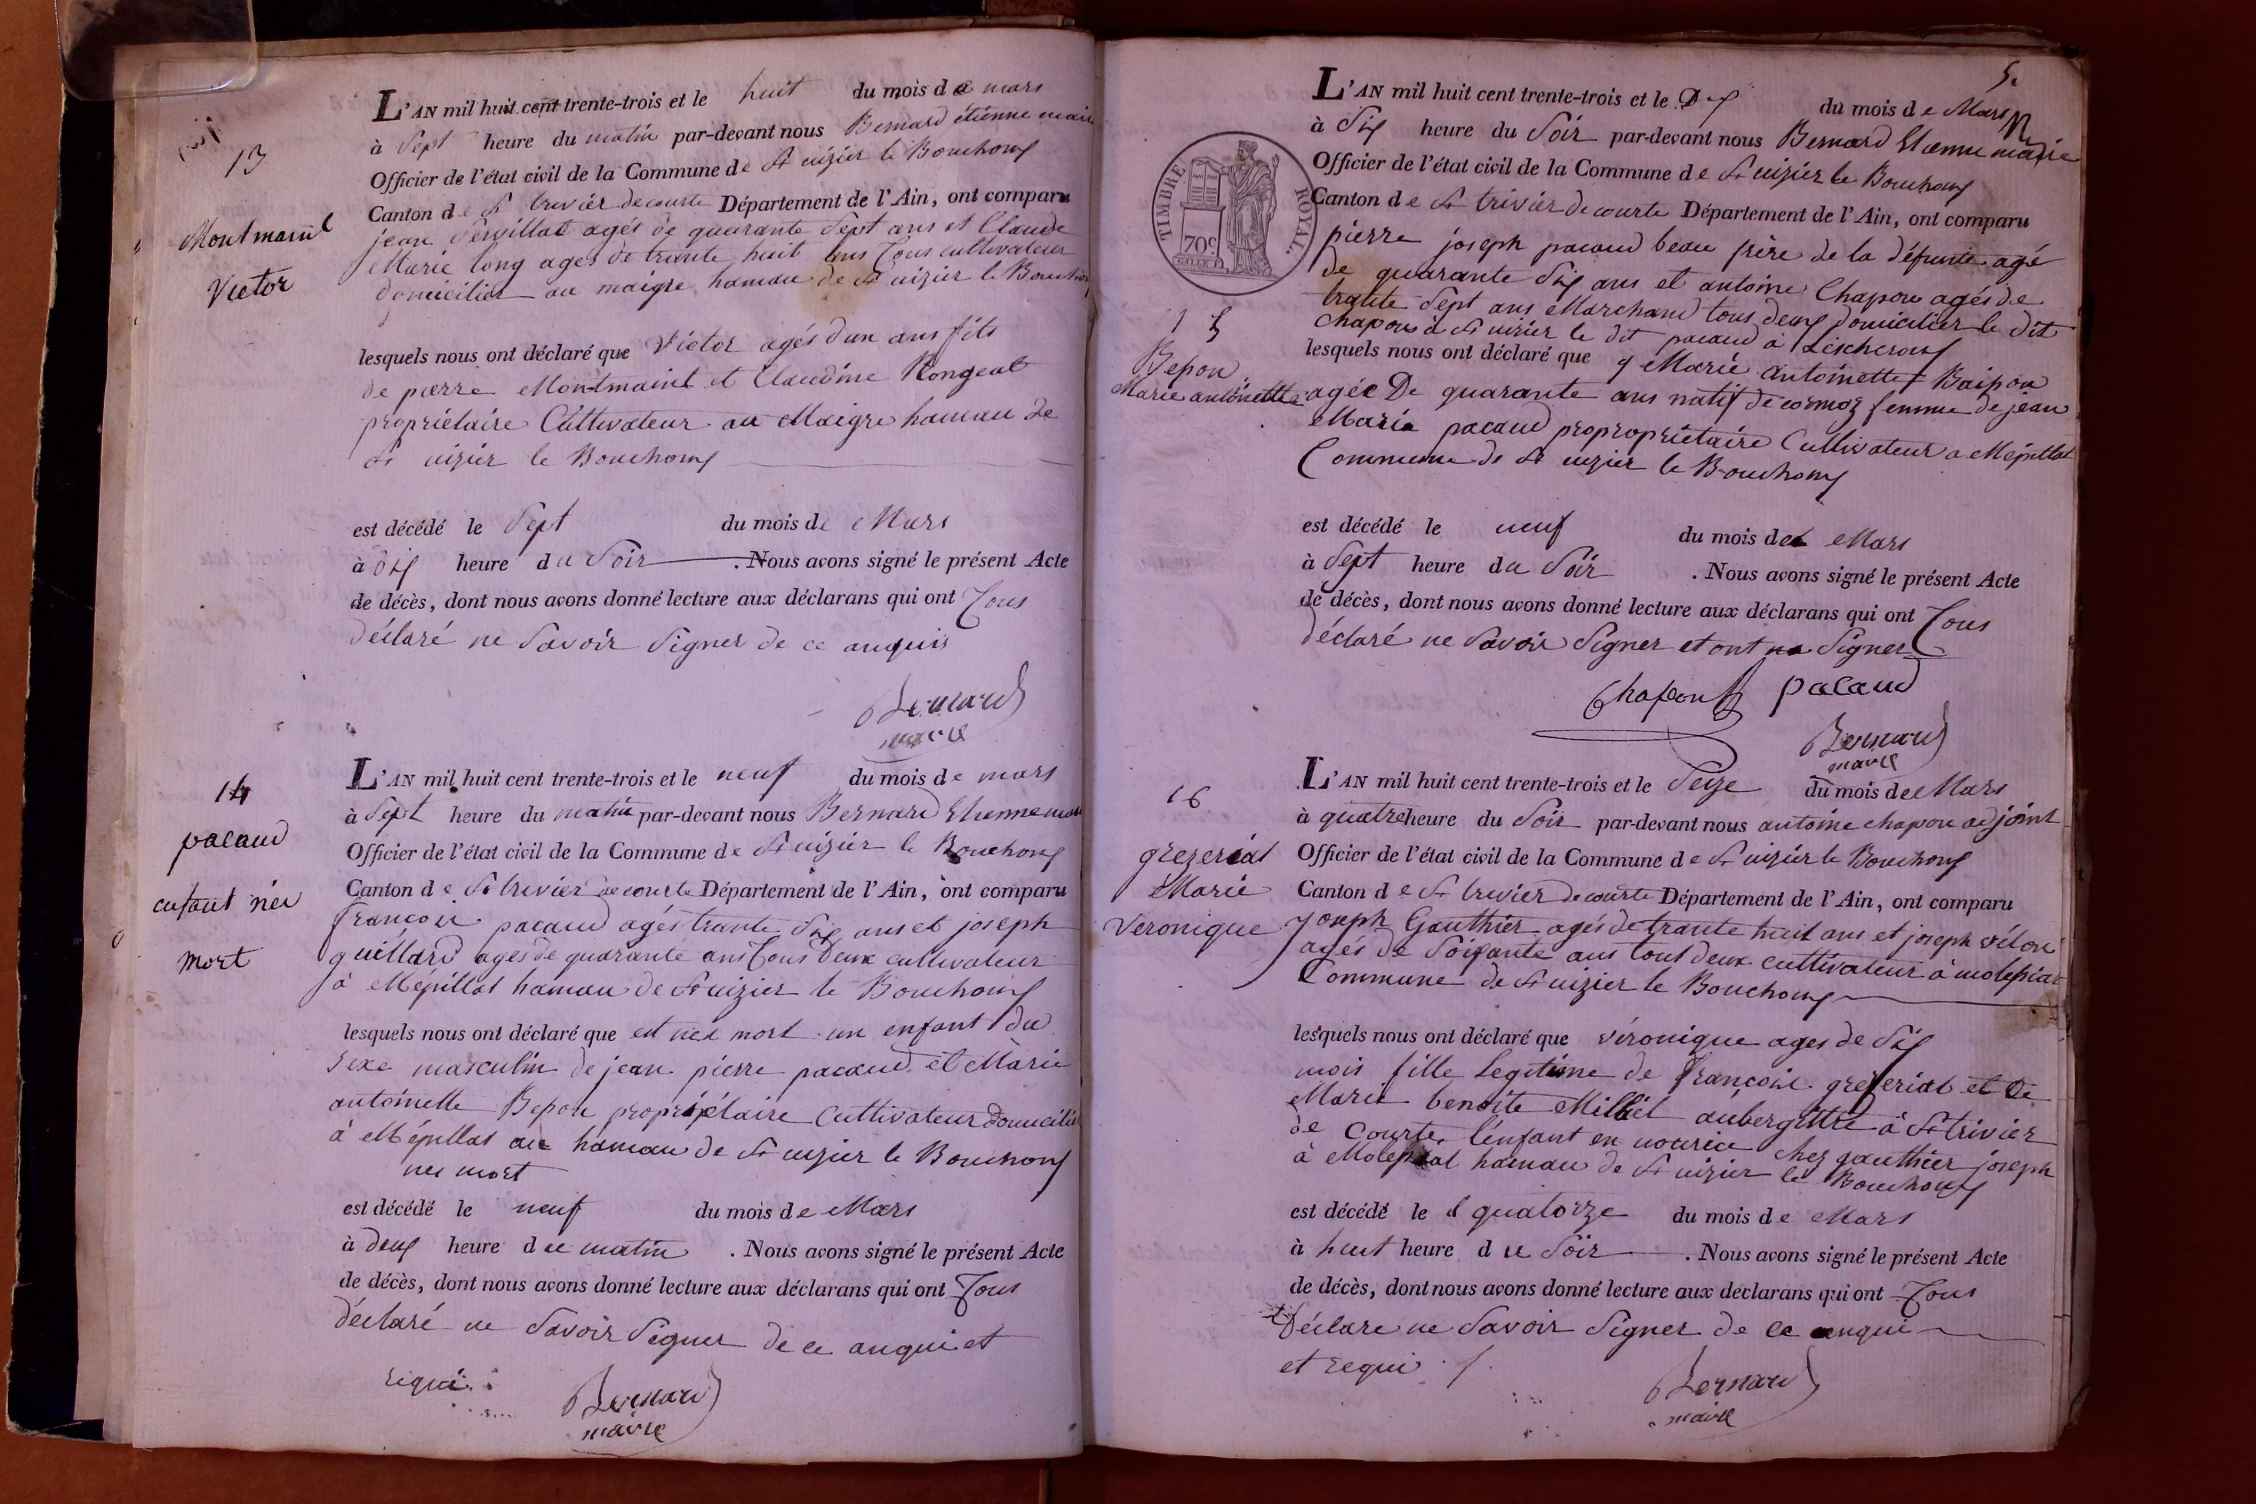 13
Montmaint
Victor
L'AN mil huit cent trente-trois et le huit du mois de mars
à Sept heure du matin par-devant nous Bernard étienne maire
Officier de l'état civil de la Commune de St nizier le Bouchoux
Canton de St trivier de courte Département de l'Ain, ont comparu
jean Servillat agés de quarante Sept ans et Claude
Marie long agés de trante huit ans Tous cultivateur
domicilier au maigre hamau de St nizier le Bouchoux
lesquels nous ont déclaré que Victor agés dun ans fils
de pierre Montmaint et Claudine Rongeat
propriétaire Cultivateur au Maigre hamau de
St nizier le Bouchoux
est décédé le Sept du mois de Mars
à dix heure du Soir . Nous avons signé le présent Acte
de décès, dont nous avons donné lecture aux déclarans qui ont Tous
déclaré ne Savoir Signer de ce anquis
Bernard
maire
14
pacaud
enfant née
mort
L'AN mil huit cent trente-trois et le neuf du mois de mars
à Sept heure du matin par-devant nous Bernard Etienne maire
Officier de l'état civil de la Commune de St nizier le Bouchoux
Canton de St trivier de courte Département de l'Ain, ont comparu
françois pacaud agés trante Six ans et joseph
guillard agés de quarante ans Tous Deux cultivateur
à Mépillat hamau de St nizier le Bouchoux
lesquels nous ont déclaré que est née mort un enfant du
sexe masculin de jean pierre pacaud et Marie
antoinette Bepon propriétaire Cultivateur Domicilié
à Mépillat au hamau de St nizier le Bouchoux
née mort
est décédé le neuf du mois de Mars
à deux heure du matin . Nous avons signé le présent Acte
de décès, dont nous avons donné lecture aux déclarans qui ont Tous
déclaré ne Savoir Signer de ce anqui et
requi
Bernard
maire
5.
TIMBRE ROYAL.
70c
15
Bepon
Marie antoinette
L'AN mil huit cent trente-trois et le Dix du mois de Mars
à Six heure du Soir par-devant nous Bernard Etienne maire
Officier de l'état civil de la Commune de St nizier le Bouchoux
Canton de St trivier de courte Département de l'Ain, ont comparu
pierre joseph pacaud beau frère de la défunte agé
de quarante Six ans et antoine Chapon agés de
trante Sept ans Marchand tous deux domicilier le dit
Chapon à St nizier le dit pacaud à Lescheroux
lesquels nous ont déclaré que Marie antoinette Baipon
agée De quarante ans natif de cormoz femme de jean
Marie pacaud propropriétaire Cultivateur a Mépillat
Commune de St nizier le Bouchoux
est décédé le neuf du mois de Mars
à Sept heure du Soir . Nous avons signé le présent Acte
de décès, dont nous avons donné lecture aux déclarans qui ont Tous
déclaré ne Savoir Signer et ont Signer
Chapon pacaud
Bernard
maire
16
grezeriat
Marie
Veronique
L'AN mil huit cent trente-trois et le Seize du mois de Mars
à quatre heure du Soir par-devant nous antoine chapon adjoint
Officier de l'état civil de la Commune de St nizier le Bouchoux
Canton de St trivier de courte Département de l'Ain, ont comparu
joseph Gauthier agés de trante huit ans et joseph
agés de Soixante ans tout deux cultivateur à
Commune de St nizier le Bouchoux
lesquels nous ont déclaré que véronique ages de Six
mois fille Legitime de françois grezeriat et de
Marie benoite Milliet aubergiste à St trivier
de Courte, l'enfant en nourice chez gauthier joseph
à hamau de St nizier le Bouchoux
est décédé le quatorze du mois de Mars
à huit heure du Soir . Nous avons signé le présent Acte
de décès, dont nous avons donné lecture aux déclarans qui ont Tous
Déclare ne Savoir Signer de ce anqui
et requi
Bernard
maire